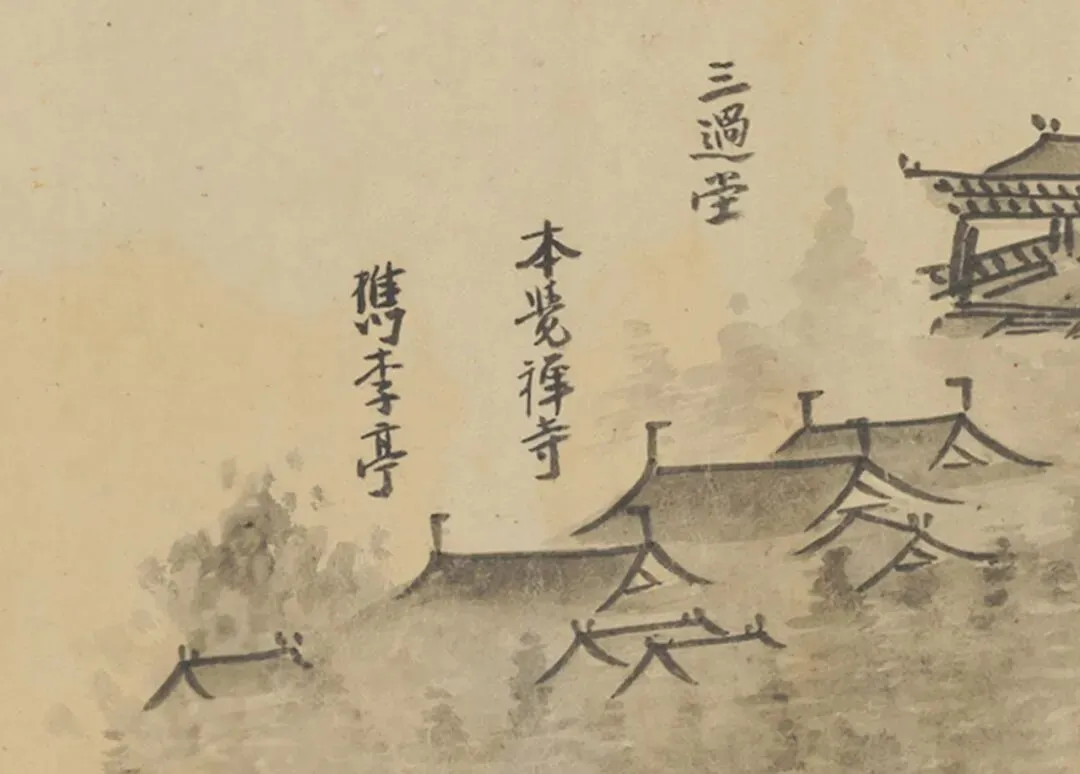 三過堂
本覺禅寺
檇李亭